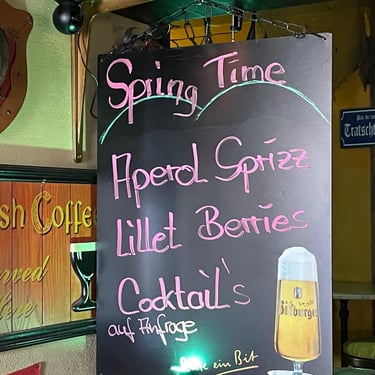 Spring Time
Aperol Sprizz
Lillet Berries
Cocktail's
auf Anfrage
Bitburger
ein Bit
sh Coffe
erved
Tratscht